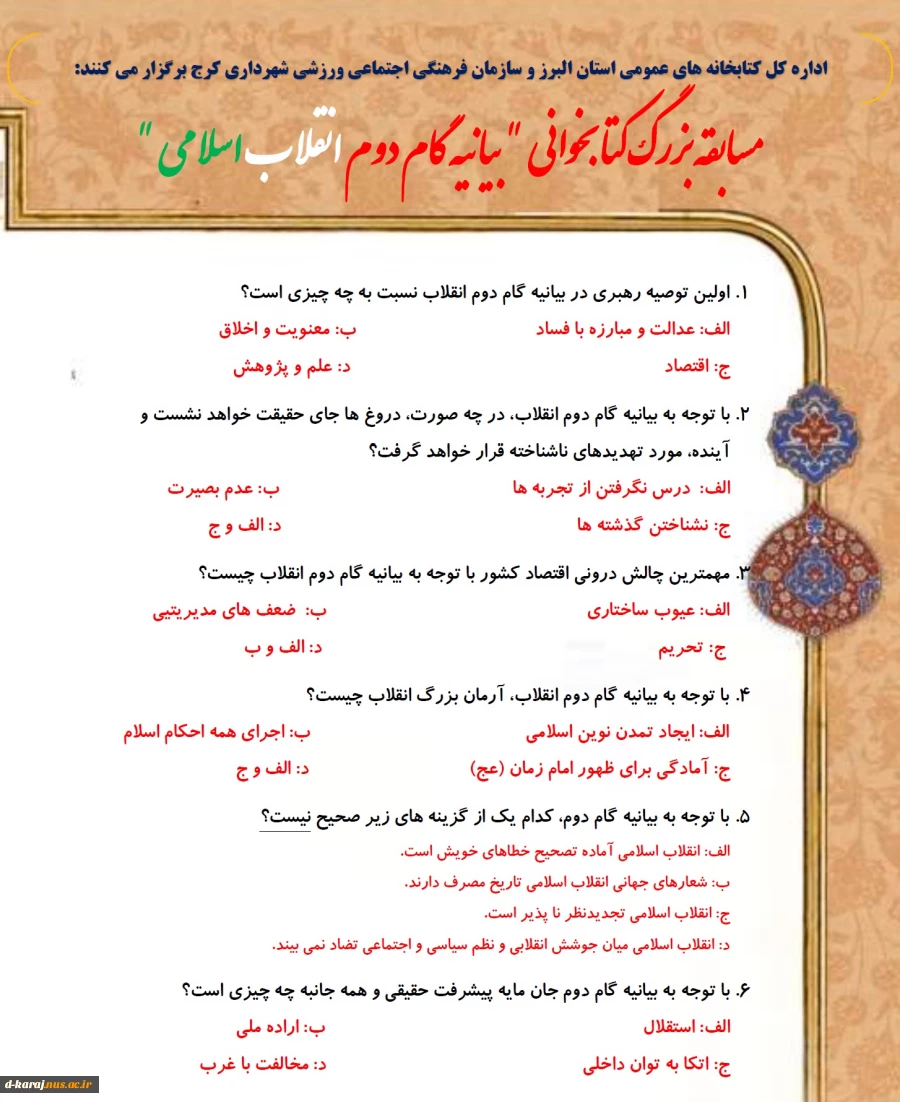 اداره کل کتابخانه های عمومی استان البرز و سازمان فرهنگی اجتماعی ورزشی شهرداری کرج برگزار می کنند:
مسابقه بزرگ کتابخوانی "بیانیه گام دوم انقلاب اسلامی"
۱. اولین توصیه رهبری در بیانیه گام دوم انقلاب نسبت به چه چیزی است؟
الف: عدالت و مبارزه با فساد ب: معنویت و اخلاق
ج: اقتصاد د: علم و پژوهش
۲. با توجه به بیانیه گام دوم انقلاب، در چه صورت، دروغ ها جای حقیقت خواهد نشست و
آینده، مورد تهدیدهای ناشناخته قرار خواهد گرفت؟
الف: درس نگرفتن از تجربه ها ب: عدم بصیرت
ج: نشناختن گذشته ها د: الف و ج
۳. مهمترین چالش درونی اقتصاد کشور با توجه به بیانیه گام دوم انقلاب چیست؟
الف: عیوب ساختاری ب: ضعف های مدیریتیی
ج: تحریم د: الف و ب
۴. با توجه به بیانیه گام دوم انقلاب، آرمان بزرگ انقلاب چیست؟
الف: ایجاد تمدن نوین اسلامی ب: اجرای همه احکام اسلام
ج: آمادگی برای ظهور امام زمان (عج) د: الف و ج
۵. با توجه به بیانیه گام دوم، کدام یک از گزینه های زیر صحیح نیست؟
الف: انقلاب اسلامی آماده تصحیح خطاهای خویش است.
ب: شعارهای جهانی انقلاب اسلامی تاریخ مصرف دارند.
ج: انقلاب اسلامی تجدیدنظر نا پذیر است.
د: انقلاب اسلامی میان جوشش انقلابی و نظم سیاسی و اجتماعی تضاد نمی بیند.
۶. با توجه به بیانیه گام دوم جان مایه پیشرفت حقیقی و همه جانبه چه چیزی است؟
الف: استقلال ب: اراده ملی
ج: اتکا به توان داخلی د: مخالفت با غرب
d-karaj.nus.ac.ir